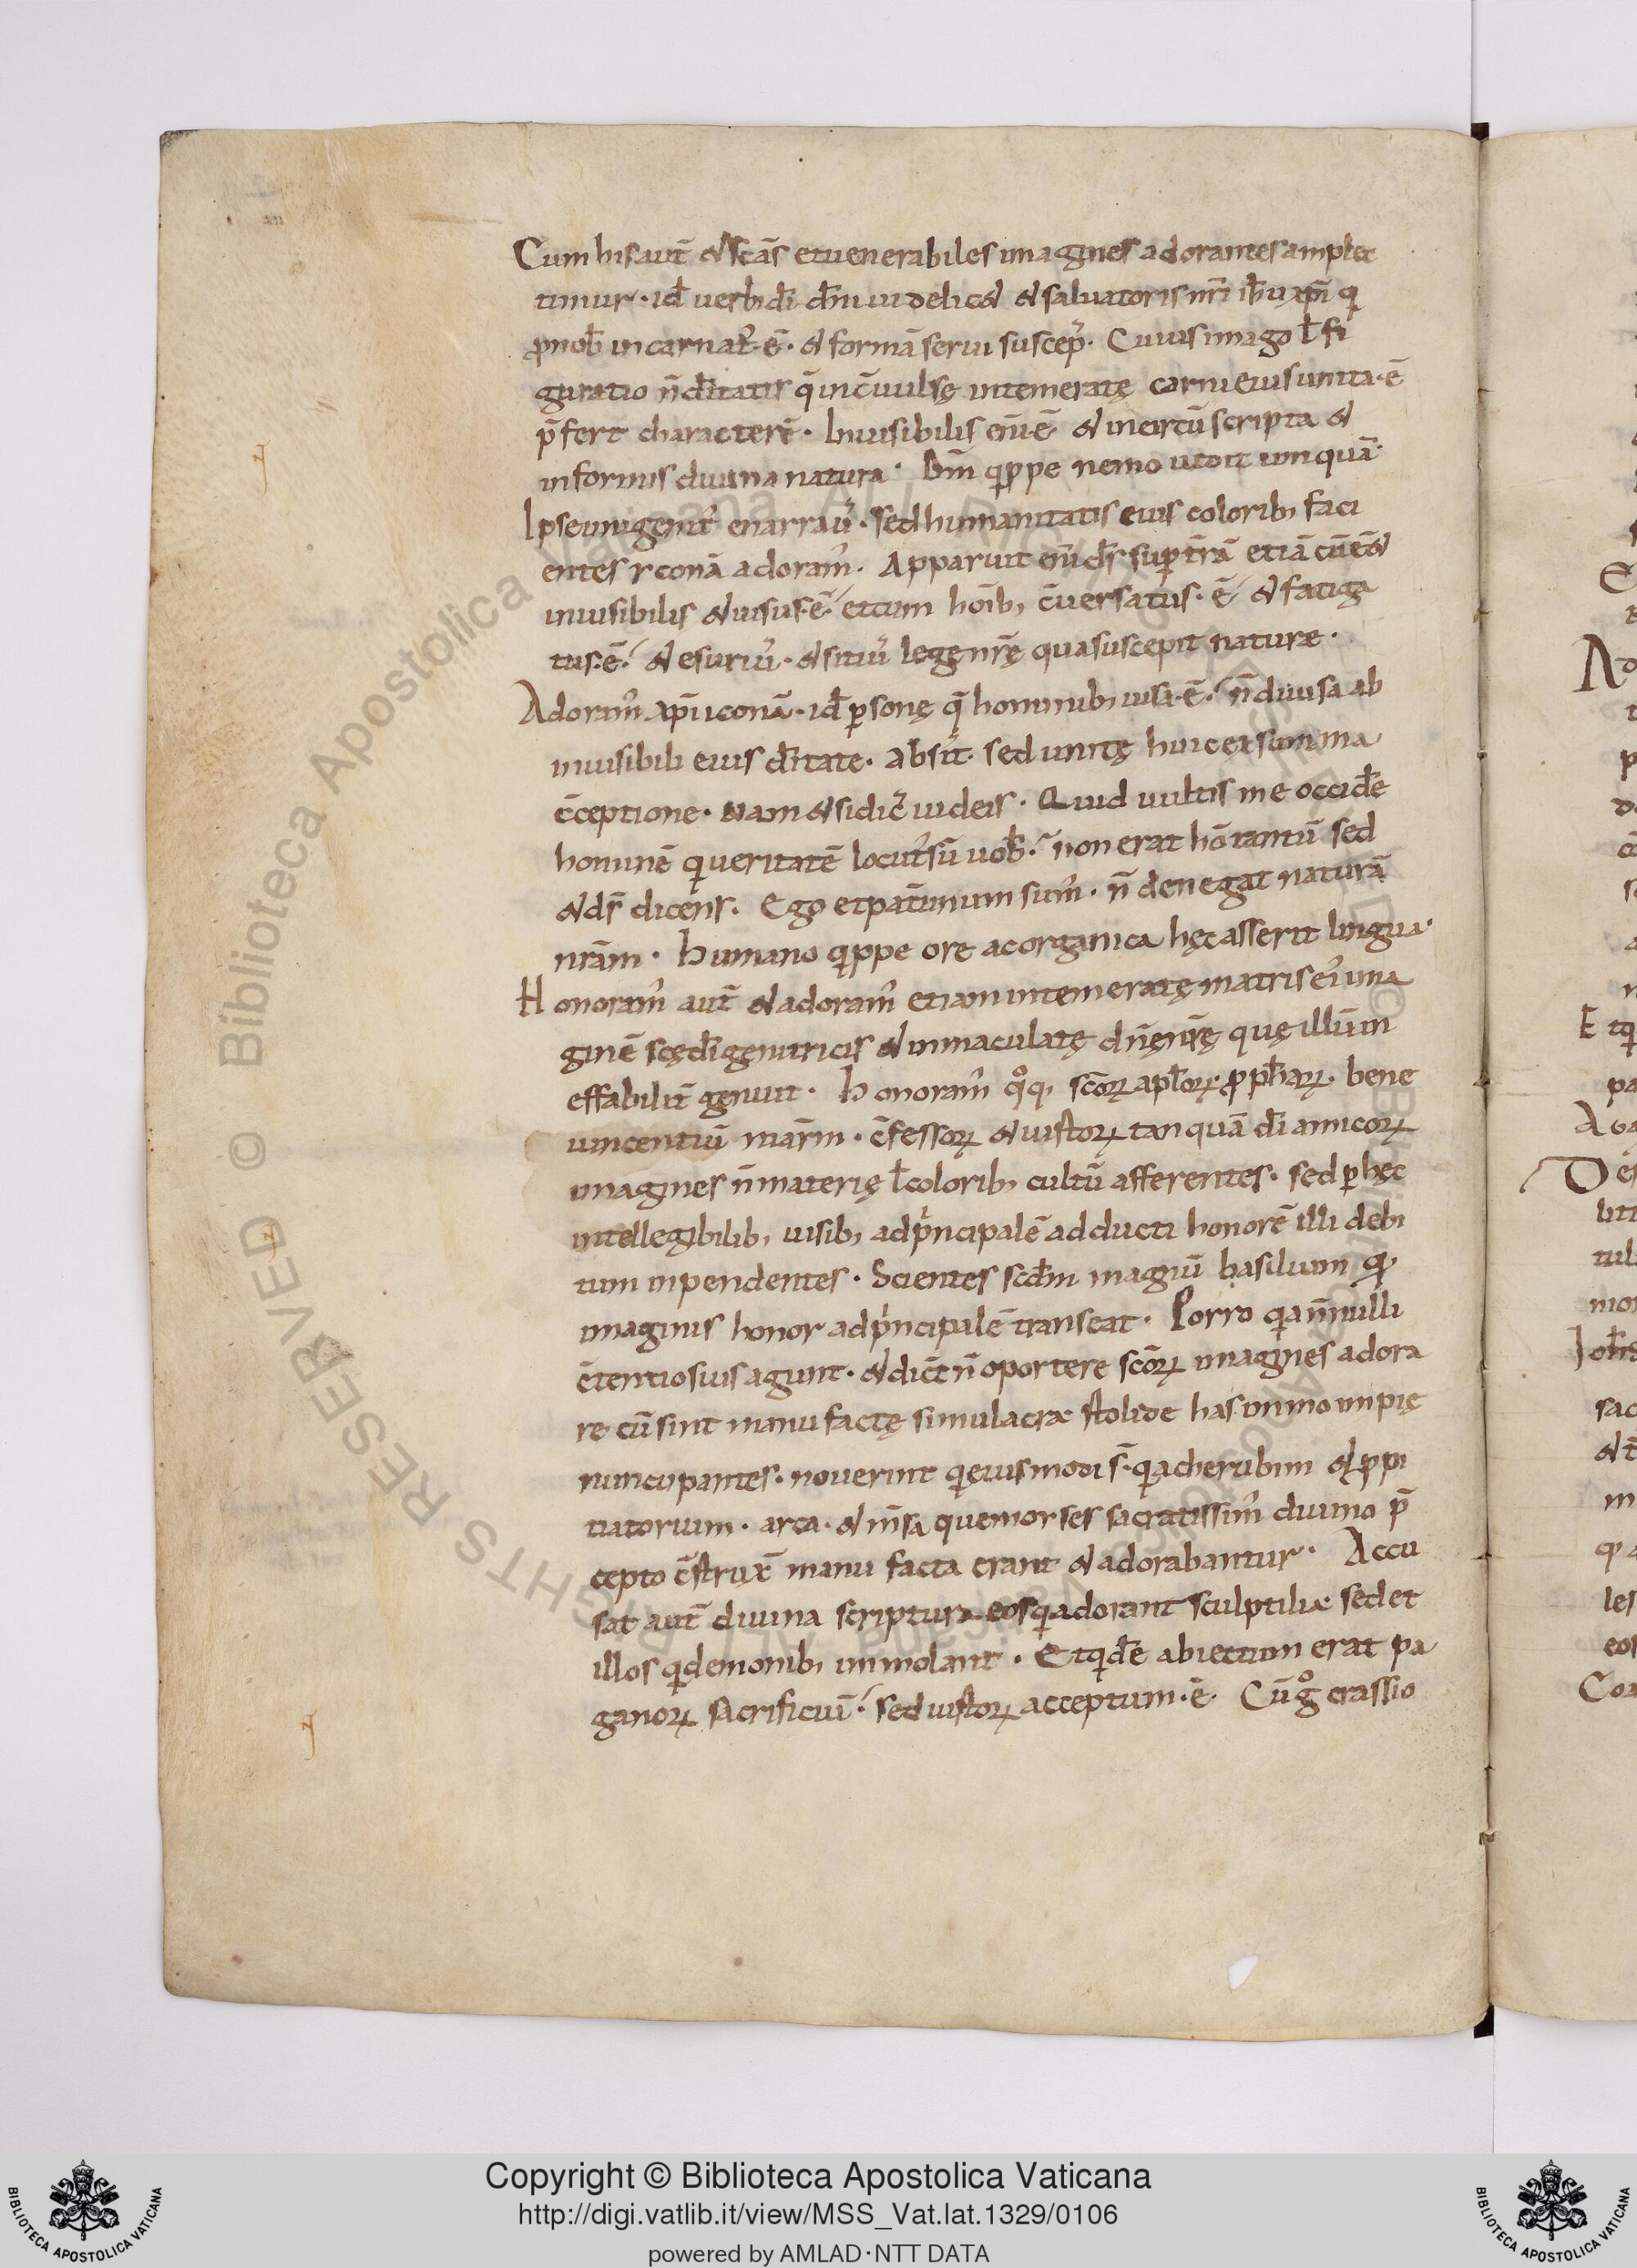 Cum his aut̄ & sc̄as et uenerabiles imagines adorantes amplec
timur · id̄ uerbi dī dn̄i uidelic& & saluatoris nr̄i ih̄u xp̄i q
ꝓ nob̄ incarnat᷒ ·ē· & formā serui suscep᷒· Cuius imago l̄ fi
guratio n̄ dītatis q̄ inc̄uulsę intemeratę carni eius unita ·ē
p̄fert characterē · Inuisibilis eni ·ē & incircū scripta &
informis diuina natura · Dm̄ q̨ppe nemo uidit umquā·
Ipse unigenit᷒ enarrau᷒ · sed humanitatis eius colorib; faci
entes yconā adoram᷒ · Apparuit eni ds̄ sup t̄rā etiā cū ēt
inuisibilis & uisus ·ē· et cum hōib; c̄uersatus ·ē· & fatiga
tus ·ē· & esuriu᷒ · & sitiu᷒ legę nr̄ę qua suscepit naturæ ·
Adoram᷒ xp̄i iconā · id̄ psonę q̄ hominib; uisa ·ē· n̄ diuisa ab
inuisibili eius dītate · absit· sed unitę huic ex summa
c̄ceptione · Nam & si dic᷒ iudeis · Quid uultis me occid̄e
hominē q ueritatē locut᷒ sū uob̄· non erat hō tantū sed
& ds̄ dicens · Ego et pat̄ unum sum᷒ · n̄ denegat naturā
nr̄am · Humano q̨ppe ore ac organica hęc asserit lingua·
Honoram᷒ aut̄ & adoram᷒ etiam intemeratę matris ei᷒ ima
ginē sc̄ę dī genitricis & immaculatę dn̄ę nr̄ę quę illū in
effabilit̄ genuit · Honoram᷒ q̊q; sc̄orꝝ apl̄orꝝ · ꝓph̄arꝝ · bene
uincentiū mar̄m · c̄fessorꝝ & iustorꝝ tanquā dī amicorꝝ
imagines n̄ materię l̄ colorib; cultū afferentes · sed p hęc
intellegibilib; uisib; ad pncipalē adducti honorē illi debi
tum inpendentes · Scientes scd̄m magnū basilium q̨
imaginis honor ad pncipalē transeat · Porro q̨a n̄nulli
c̄tentiosius agunt · & dic̄t n̄ oportere sc̄orꝝ imagines adora
re cū sint manu factę simulacræ stolide has immo impię
nuncupantes · nouerint q eius modi s̄ · q̨a cherubim & ꝓpi
tiatorium · arca · & m̄sa que morses sacratissim᷒ diuino p̄
cepto c̄strux̄ manu facta erant & adorabantur · Accu
sat aut̄ diuina scriptura eos q adorant sculptiliæ sed et
illos q demonib; immolant · Et q̨d̄e abiectum erat pa
ganorꝝ sacrificiū · sed iustorꝝ acceptum ·ē· Cū g̊ crassio
Biblioteca Apostolica Vaticana ALL RIGHTS RESERVED ©
Copyright © Biblioteca Apostolica Vaticana
http://digi.vatlib.it/view/MSS_Vat.lat.1329/0106
powered by AMLAD·NTT DATA
BIBLIOTECA APOSTOLICA VATICANA
BIBLIOTECA APOSTOLICA VATICANA